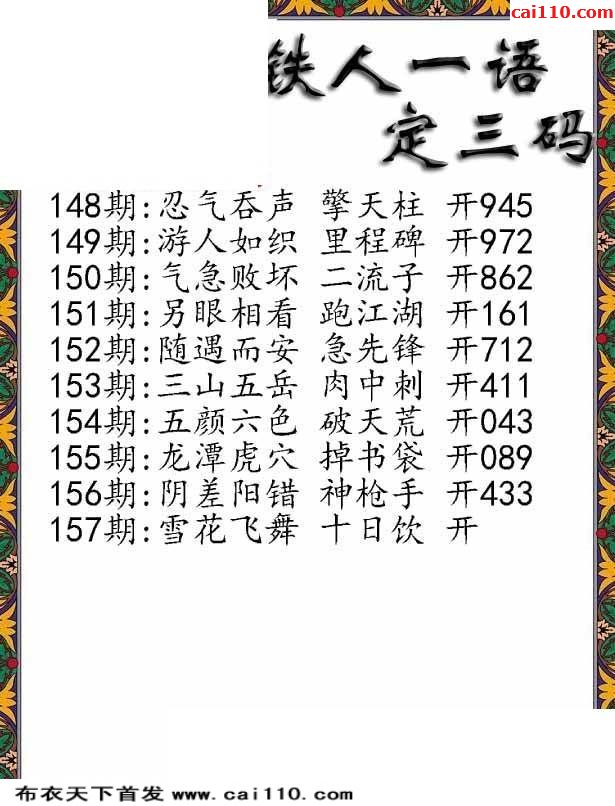 cai110.com
铁人一语
定三码
148期:忍气吞声 擎天柱 开945
149期:游人如织 里程碑 开972
150期:气急败坏 二流子 开862
151期:另眼相看 跑江湖 开161
152期:随遇而安 急先锋 开712
153期:三山五岳 肉中刺 开411
154期:五颜六色 破天荒 开043
155期:龙潭虎穴 掉书袋 开089
156期:阴差阳错 神枪手 开433
157期:雪花飞舞 十日饮 开
布衣天下首发 www.cai110.com